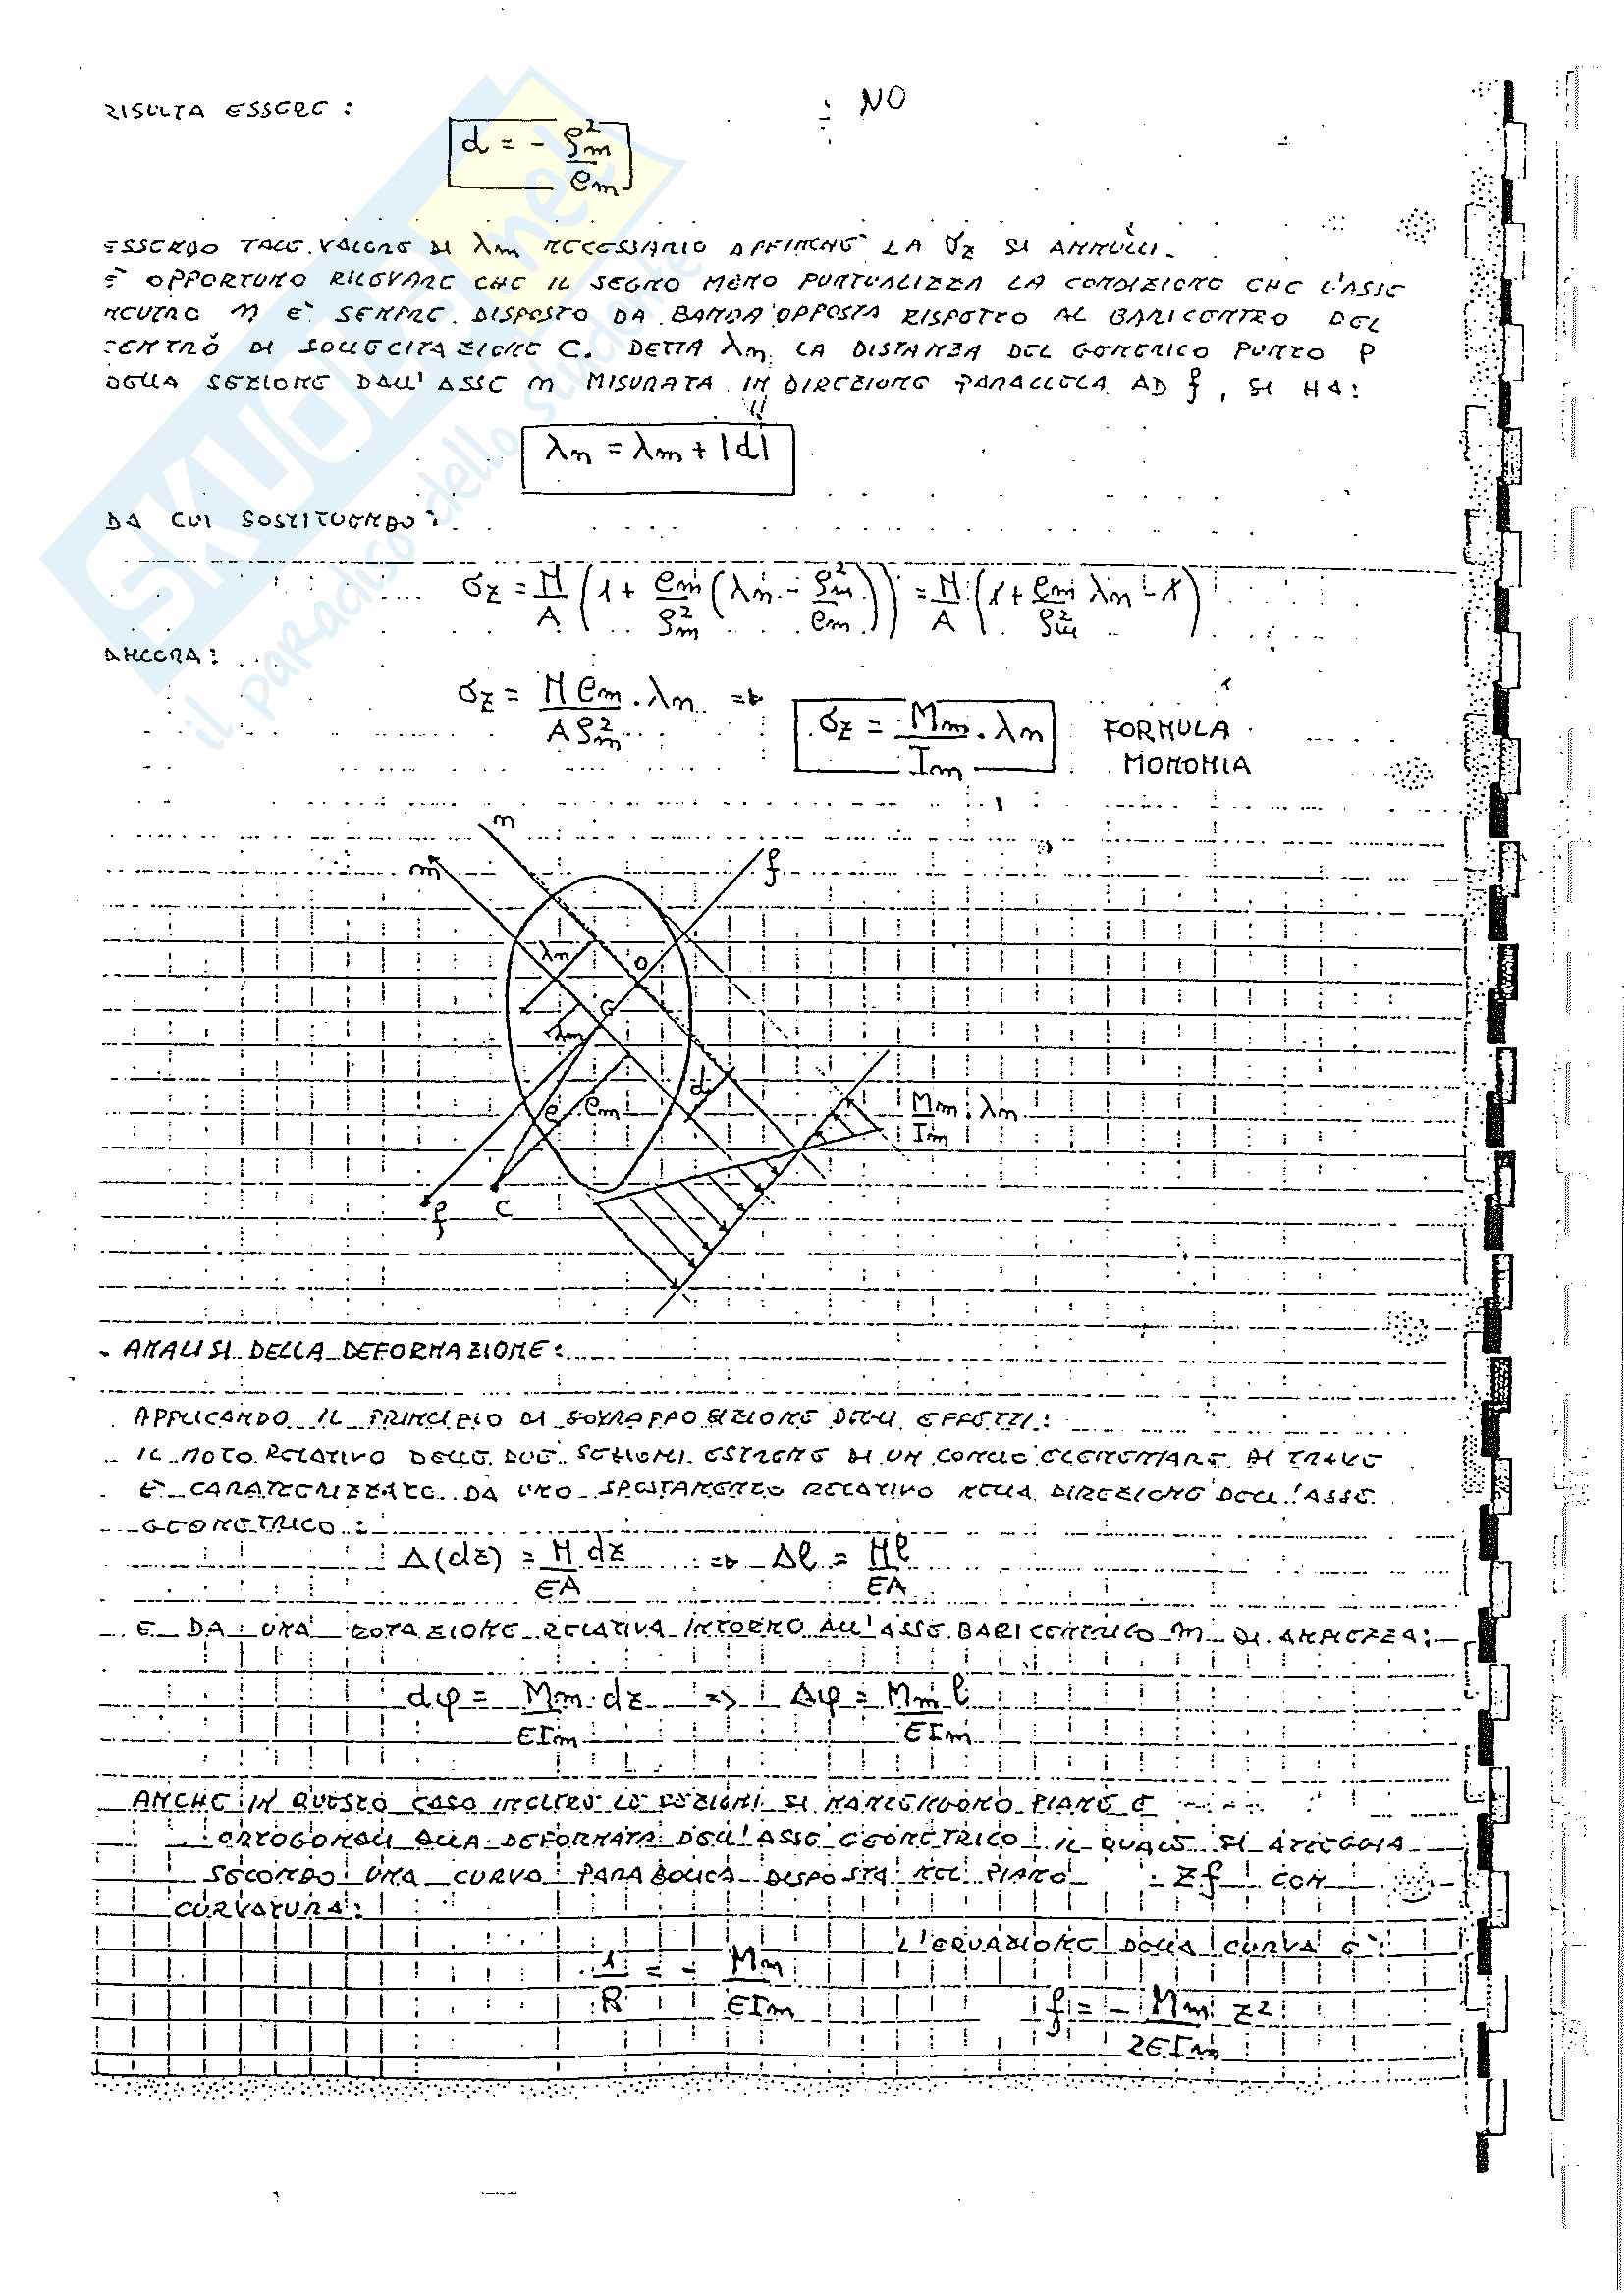 RISULTA ESSERE : : NO
d = - ρ²m / em
ESSENDO TALE VALORE DI λm NECESSARIO AFFINCHÈ LA σz SI ANNULLI.
È OPPORTUNO RILEVARE CHE IL SEGNO MENO PUNTUALIZZA LA CONDIZIONE CHE L'ASSE
NEUTRO n È SEMPRE DISPOSTO DA BANDA OPPOSTA RISPETTO AL BARICENTRO DEL
CENTRO DI SOLLECITAZIONE C. DETTA λn LA DISTANZA DEL GENERICO PUNTO P
DELLA SEZIONE DALL'ASSE n MISURATA IN DIREZIONE PARALLELA AD f, SI HA:
λn = λm + |d|
DA CUI SOSTITUENDO:
σz = N/A (1 + em/ρ²m (λn - ρ²m/em)) = N/A (1 + em/ρ²m λn - 1)
ANCORA:
σz = N em / A ρ²m · λn => σz = Mm / Im · λn FORMULA
MONOMIA
n
m
f
λn
O
G
λm
d
e
em
Mm/Im · λn
f
C
- ANALISI DELLA DEFORMAZIONE:
APPLICANDO IL PRINCIPIO DI SOVRAPPOSIZIONE DEGLI EFFETTI:
IL MOTO RELATIVO DELLE DUE SEZIONI ESTREME DI UN CONCIO ELEMENTARE DI TRAVE
È CARATTERIZZATO DA UNO SPOSTAMENTO RELATIVO NELLA DIREZIONE DELL'ASSE
GEOMETRICO:
Δ(dz) = N dz / EA => Δl = Nl / EA
E DA UNA ROTAZIONE RELATIVA INTORNO ALL'ASSE BARICENTRICO m DI AMPIEZZA:
dφ = Mm dz / EIm => Δφ = Mm l / EIm
ANCHE IN QUESTO CASO INOLTRE LE SEZIONI SI MANTENGONO PIANE E
ORTOGONALI ALLA DEFORMATA DELL'ASSE GEOMETRICO IL QUALE SI ATTEGGIA
SECONDO UNA CURVA PARABOLICA DISPOSTA NEL PIANO zf CON
CURVATURA:
L'EQUAZIONE DELLA CURVA È:
1/R = - Mm / EIm
f = - Mm / 2EIm z²
SKUOLA.net
il paradiso dello studente